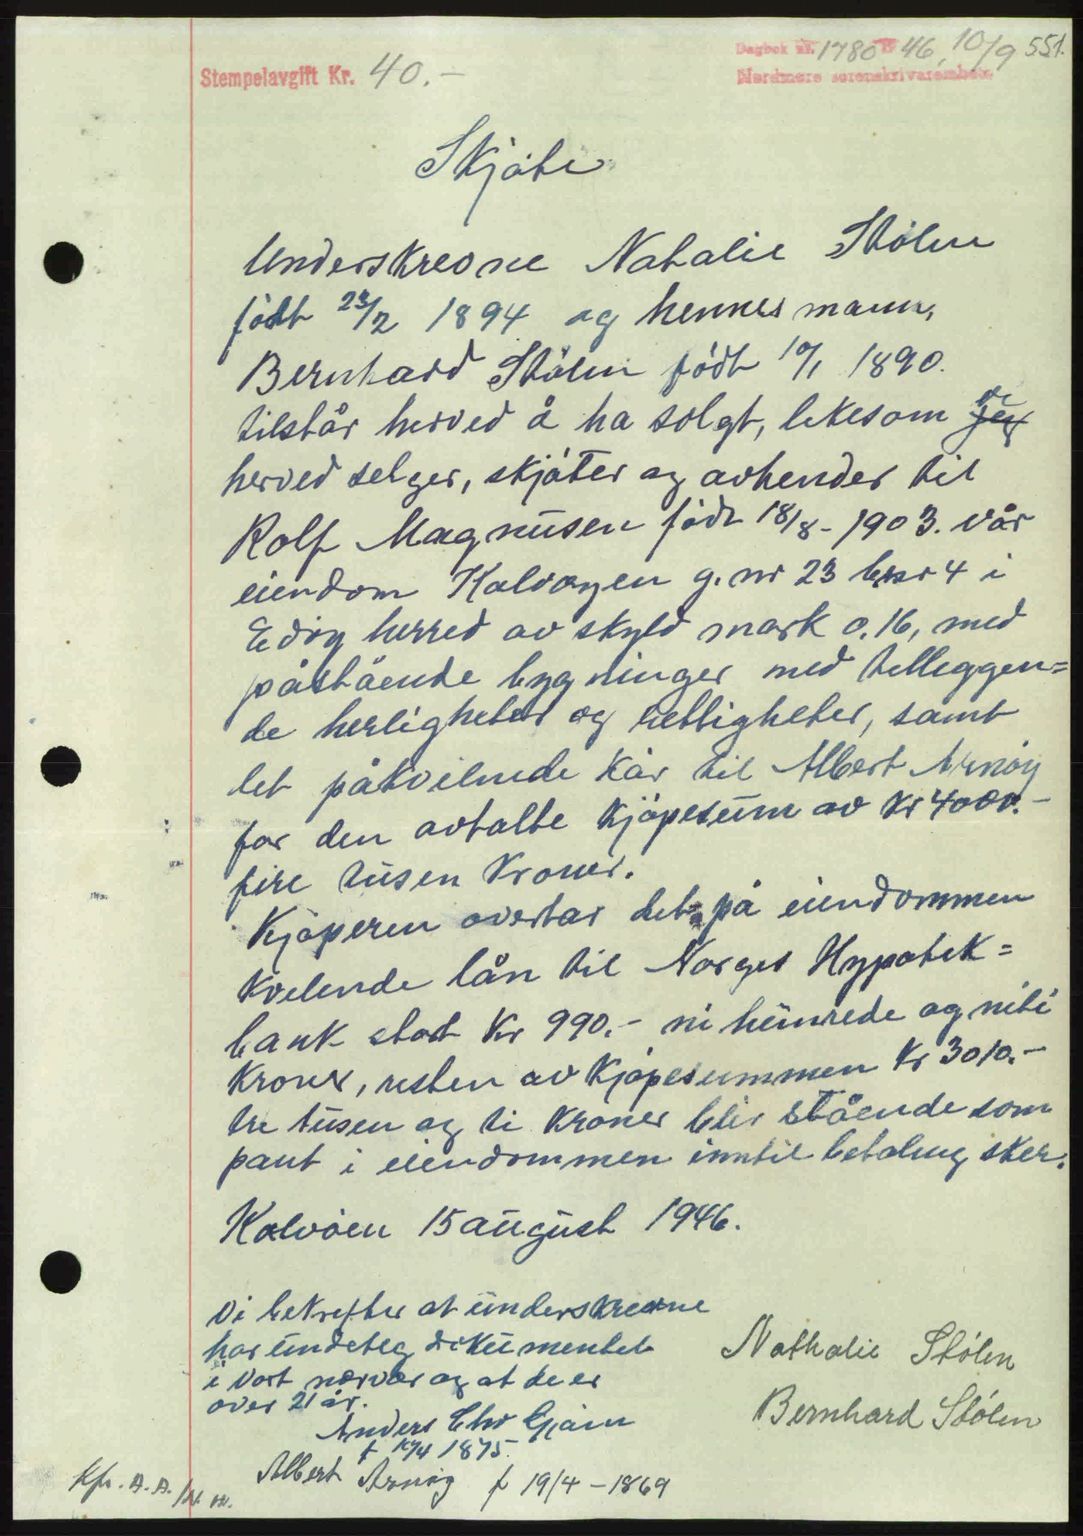 Dagbok nr. 1780 - 46, 10/9 551.
Stempelavgift Kr. 40.-
Nordmøre sorenskriverembete
Skjöte
Underskrevne Natalie Stölen
födt 23/2 1894 og hennes mann,
Bernhard Stölen födt 10/1 1890.
tilstår herved å ha solgt, likesom vi
herved selger, skjöter og avhender til
Rolf Magnusen födt 18/8 - 1903. vår
eiendom Kalvöyen g. nr 23 brnr 4 i
Edöy herred av skyld mark 0.16, med
påstående bygninger med tilleggen=
de herligheter og rettigheter, samt
det påkvilende kår til Albert Arnöy
for den avtalte kjöpesum av kr 4000.-
fire tusen kroner.
Kjöperen overtar det på eiendommen
kvilende lån til Norges Hypotek=
bank stort kr 990.- ni hundrede og niti
kroner, resten av kjöpesummen kr 3010.-
tre tusen og ti kroner blir stående som
pant i eiendommen inntil betaling sker.
Kalvöen 15 august 1946.
Vi bekrefter at underskrevne
har undeteg dokumentet
i vort nærvær og at de er
over 21 år.
Nathalie Stølen
Bernhard Stólen
Anders Chr Gjöen
f 1875.
Albert Arnöy f 19/4 - 1869
Kfr. A. A.